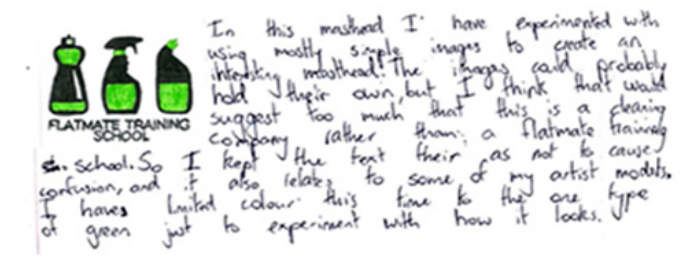 FLATMATE TRAINING
SCHOOL
In this masthead I have experimented with
using mostly simple images to create an
intresting masthead. The images could probably
hold their own, but I think that would
suggest too much that this is a cleaning
company rather than a flatmate training
school. So I kept the text their as not to cause
confusion, and it also relates to some of my artist models.
I haves limited colour this time to the one type
of green just to experiment with how it looks.